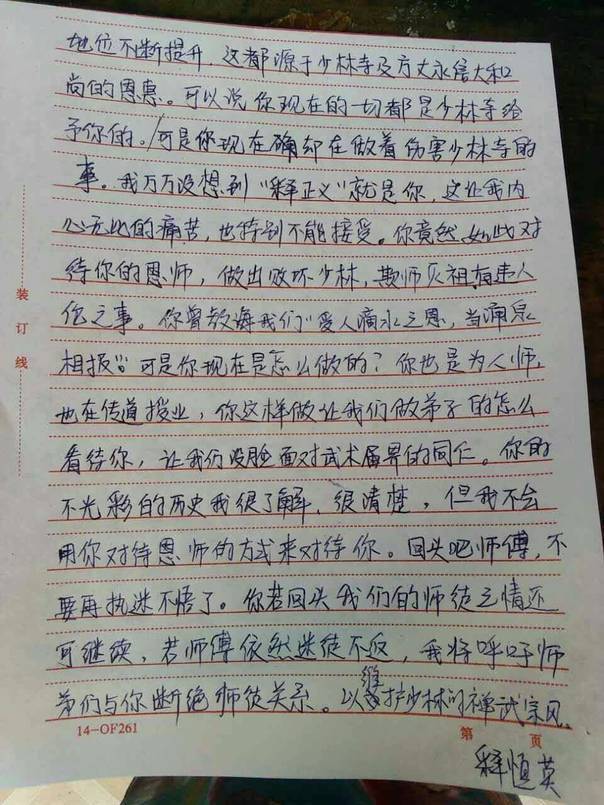 地位不断提升，这都源于少林寺及方丈永信大和
尚的恩惠。可以说你现在的一切都是少林寺给
予你的。可是你现在确却在做着伤害少林寺的
事。我万万没想到“释正义”就是你，这让我内
心无比的痛苦，也特别不能接受。你竟然如此对
待你的恩师，做出败坏少林，欺师灭祖有违人
伦之事。你曾教诲我们“受人滴水之恩，当涌泉
相报”。可是你现在是怎么做的？你也是为人师，
也在传道授业，你这样做让我们做弟子的怎么
看待你，让我们没脸面对武术届界的同仁。你的
不光彩的历史我很了解，很清楚，但我不会
用你对待恩师的方式来对待你。回头吧师傅，不
要再执迷不悟了。你若回头我们的师徒之情还
可继续，若师傅依然迷徒不返，我将呼吁师
弟们与你断绝师徒关系。以维护少林的禅武宗风。
14-OF261
第 页
释恒英
装订线